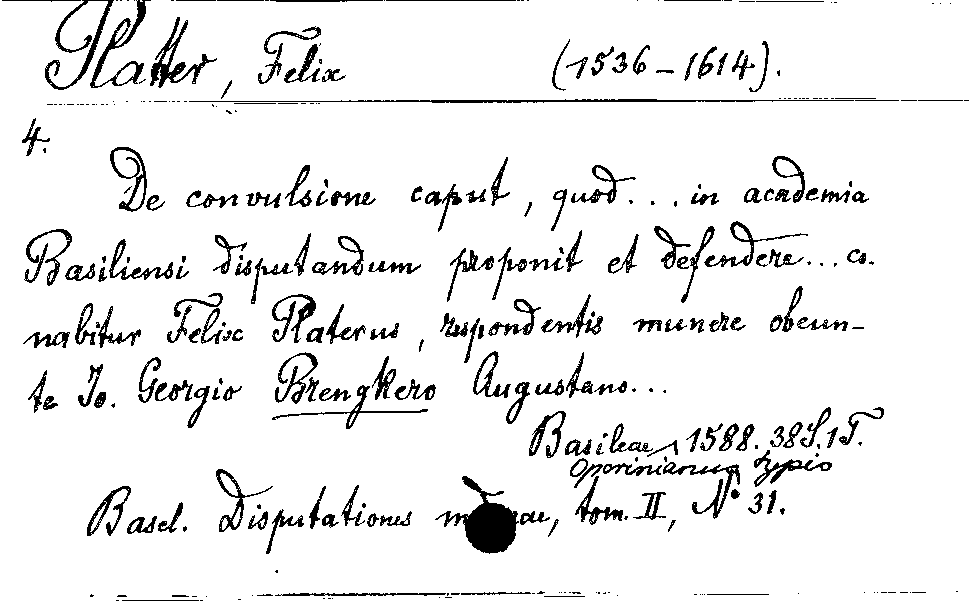 Platter, Felix (1536-1614).
4.
De convulsione caput, quod... in academia
Basiliensi disputandum proponit et defendere... co-
nabitur Felix Platerus, respondentis munere obeun-
te Io. Georgio Brengkero Augustano...
Basileae, 1588. 38 S. 1 T.
Oporinianis typis
Basel. Disputationes tom. II, No 31.